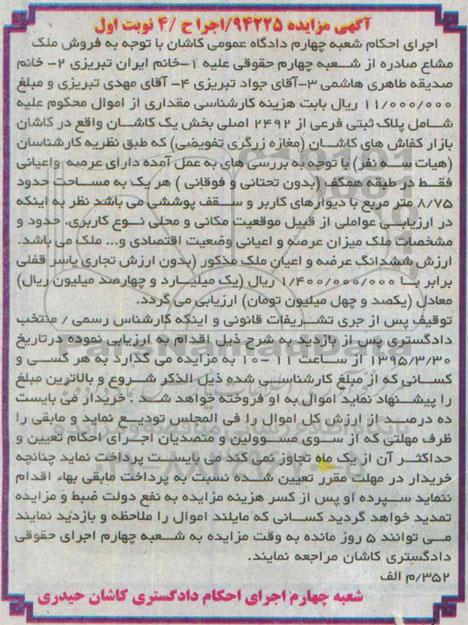 آگهی مزایده ۹۴۲۲۵/اجرا ح /۴ نوبت اول
اجرای احکام شعبه چهارم دادگاه عمومی کاشان با توجه به فروش ملک
مشاع صادره از شعبه چهارم حقوقی علیه ۱-خانم ایران تبریزی ۲- خانم
صدیقه طاهری هاشمی ۳-آقای جواد تبریزی ۴- آقای مهدی تبریزی و مبلغ
۱۱/۰۰۰/۰۰۰ ریال بابت هزینه کارشناسی مقداری از اموال محکوم علیه
شامل پلاک ثبتی فرعی از ۲۴۹۲ اصلی بخش یک کاشان واقع در کاشان
بازار کفاش های کاشان (مغازه زرگری تفویضی) که طبق نظریه کارشناسان
(هیات سه نفر) با توجه به بررسی های به عمل آمده دارای عرصه واعیانی
فقط در طبقه همکف (بدون تحتانی و فوقانی ) هر یک به مساحت حدود
۸/۷۵ متر مربع با دیوارهای کاربر و سقف پوششی می باشد نظر به اینکه
در ارزیابی عواملی از قبیل موقعیت مکانی و محلی نوع کاربری، حدود و
مشخصات ملک میزان عرصه و اعیانی وضعیت اقتصادی و... ملک می باشد.
ارزش ششدانگ عرصه و اعیان ملک مذکور (بدون ارزش تجاری یاسر قفلی
برابر با ۱/۴۰۰/۰۰۰/۰۰۰ ریال (یک میلیارد و چهارصد میلیون ریال)
معادل (یکصد و چهل میلیون تومان) ارزیابی می گردد.
توقیف پس از جری تشریفات قانونی و اینکه کارشناس رسمی / منتخب
دادگستری پس از بازدید به شرح ذیل اقدام به ارزیابی نموده درتاریخ
۱۳۹۵/۳/۳۰ از ساعت ۱۱-۱۰ به مزایده می گذارد به هر کسی و
کسانی که از مبلغ کارشناسی شده ذیل الذکر شروع و بالاترین مبلغ
را پیشنهاد نماید اموال به او فروخته خواهد شد . خریدار می بایست
ده درصد از ارزش کل اموال را فی المجلس تودیع نماید و مابقی را
ظرف مهلتی که از سوی مسوولین و متصدیان اجرای احکام تعیین و
حداکثر آن از یک ماه تجاوز نمی کند می بایست پرداخت نماید چنانچه
خریدار در مهلت مقرر تعیین شده نسبت به پرداخت مابقی بهاء اقدام
ننماید سپرده او پس از کسر هزینه مزایده به نفع دولت ضبط و مزایده
تمدید خواهد گردید کسانی که مایلند اموال را ملاحظه و بازدید نمایند
می توانند ۵ روز مانده به وقت مزایده به شعبه چهارم اجرای حقوقی
دادگستری کاشان مراجعه نمایند.
۳۵۲/م الف
شعبه چهارم اجرای احکام دادگستری کاشان حیدری